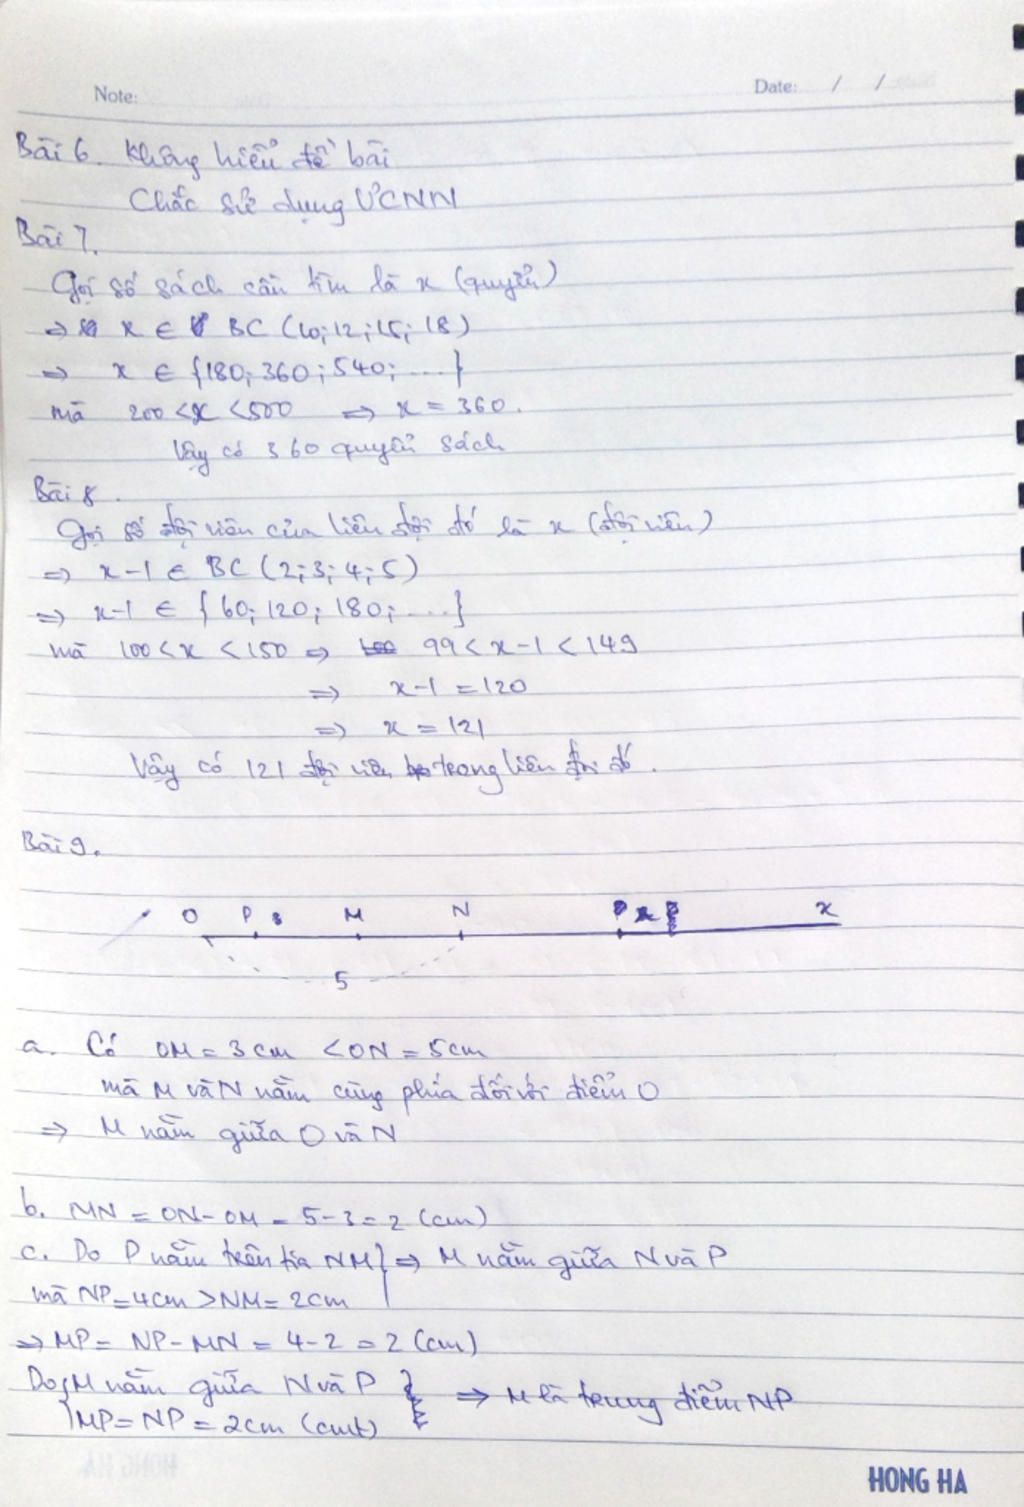 Note:
Date: / /
Bài 6. Không hiểu đề bài
Chắc sử dụng ƯCNN
Bài 7.
Gọi số sách cần tìm là x (quyển)
=> x ∈ BC (10; 12; 15; 18)
=> x ∈ {180; 360; 540; ....}
mà 200 < x < 500 => x = 360.
Vậy có 360 quyển sách
Bài 8.
Gọi số đội viên của liên đội đó là x (đội viên)
=> x-1 ∈ BC (2; 3; 4; 5)
=> x-1 ∈ {60; 120; 180; ....}
mà 100 < x < 150 => 99 < x-1 < 149
=> x-1 = 120
=> x = 121
Vậy có 121 đội viên trong liên đội đó.
Bài 9.
O P M N x
5
a. Có OM = 3cm < ON = 5cm
mà M và N nằm cùng phía đối với điểm O
=> M nằm giữa O và N
b. MN = ON - OM = 5-3 = 2 (cm)
c. Do P nằm trên tia NM } => M nằm giữa N và P
mà NP = 4cm > NM = 2cm
=> MP = NP - MN = 4-2 = 2 (cm)
Do { M nằm giữa N và P } => M là trung điểm NP
MP = NP = 2cm (cmt)
HONG HA